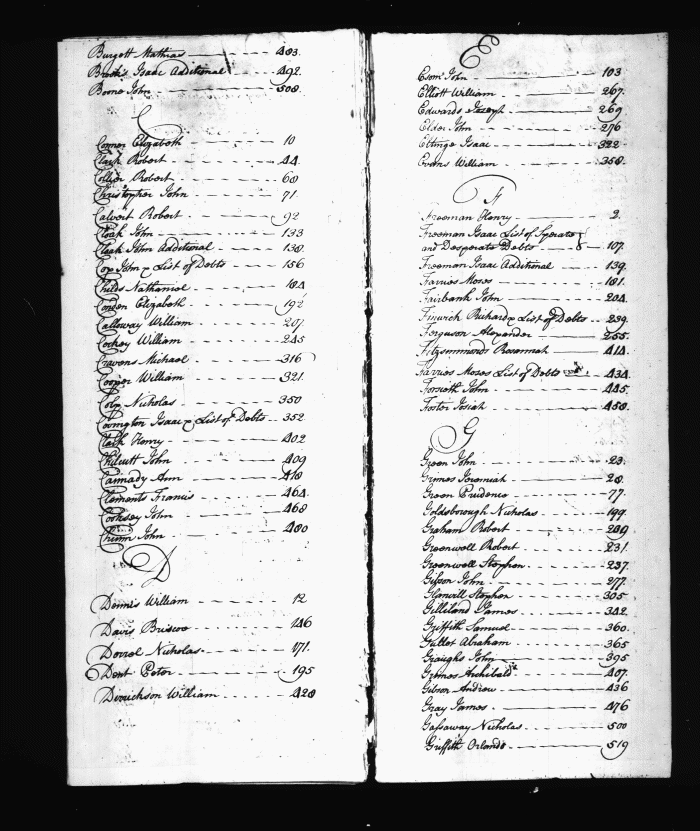 Burgett Mathias 483.
Brooks Isaac Additional 492.
Boone John 508.
C
Conner Elizabeth 10
Clark Robert 44.
Collier Robert 60
Christopher John 71.
Calvert Robert 92
Cloak John 133
Cloak John Additional 138.
Cox John List of Debts 156
Childs Nathaniel 184
Conden Elizabeth 192
Calloway William 207
Cockey William 245
Cravens Michael 316
Cooper William 321.
Nicholas 350
Covington Isaac List of Debts 352
Clark Henry 402
Chilcutt John 409
Cannady Ann 418
Clements Francis 464.
Cooksey John 468
Chunn John 480
D
Dennis William 12
Davis Briscoe 146
Dorrel Nicholas 171.
Dent Peter 195
Dirrickson William 428
E
Esom John 103
Elliott William 267.
Edwards Joseph 269
Elder John 276
Eltinge Isaac 322
Evans William 358.
F
Freeman Henry 2.
Freeman Isaac List of Sperate
and Desperate Debts 107.
Freeman Isaac Additional 139.
Farries Moses 181.
Fairbank John 204.
Finwick Richard List of Debts 239.
Ferguson Alexander 255.
Fitzsimmonds Rosannah 414.
Farries Moses List of Debts 434.
Forsieth John 445.
Foster Josiah 458.
G
Green John 23.
Grimes Jeremiah 28.
Green Prudence 77.
Goldsborough Nicholas 199.
Graham Robert 209
Greenwell Robert 231.
Greenwell Stephen 237.
Gibson John 277.
Glanvill Stephen 305
Gilliland James 342.
Griffith Samuel 360.
Gullet Abraham 365
John 395
Grimes Archibald 407.
Gibson Andrew 436
Gray James 476
Gassaway Nicholas 500
Griffith Orlando 519